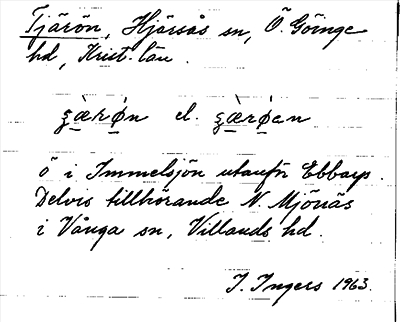 Tjärön, Hjärsås sn, Ö. Göinge
hd, Krist. län.
ȿæ̀rø̀n el. ȿæ̀rø̀en
ö i Immelsjön utanför Ebbarp.
Delvis tillhörande N. Mjönäs
i Vånga sn, Villands hd.
I. Ingers 1963.